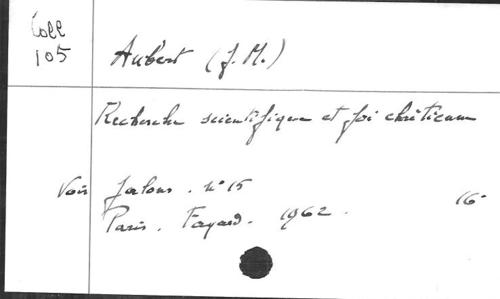 Coll
105
Aubert (J. M.)
Recherche scientifique et foi chrétienne
Voir Jalons. n° 15
Paris. Fayard. 1962. 16°